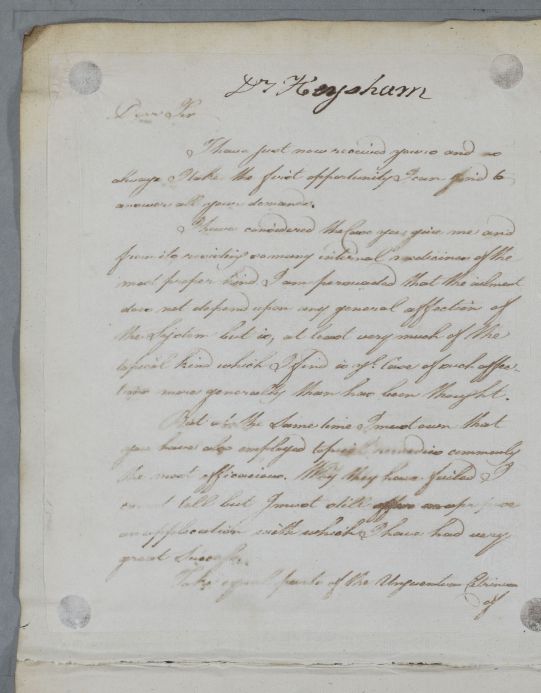 Dr Heysham
Dear Sir
I have just now received yours and as
always I take the first opportunity I can find to
answer all your demands.
I have considered the Case you give me and
from its resisting so many internal medicines of the
most proper kind I am perswaded that the ailment
does not depend upon any general affection of
the System but is, at least very much of the
topical kind which I find is ye. Case of such affec-
tions more generally than has been thought.
But at the same time I must own that
you have also employed topical remedies commonly
the most efficacious. Why they have failed I
cannot tell but I must still propose
an application with which I have had very
great Success.
Take equal parts of the Unguentum Citrinum
of